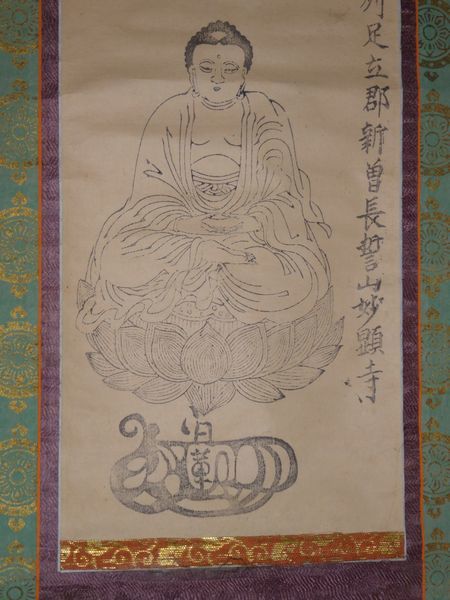 足立郡新曽長誓山妙顕寺
日蓮